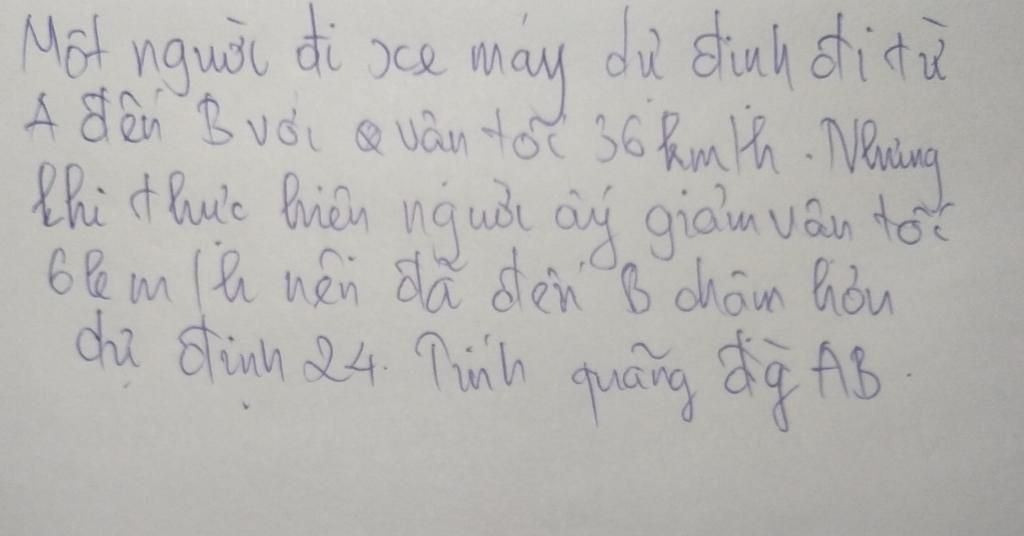 Một người đi xe máy dự định đi từ
A đến B với vận tốc 36 km/h. Nhưng
khi thực hiện người ấy giảm vận tốc
6km/h nên đã đến B chậm hơn
dự định 24. Tính quãng đg̀ AB.